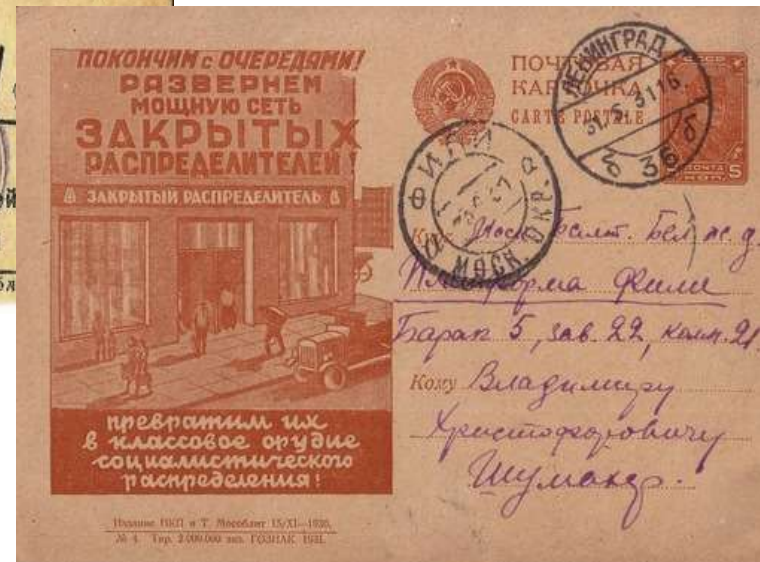 ПОКОНЧИМ с ОЧЕРЕДЯМИ!
РАЗВЕРНЕМ
МОЩНУЮ СЕТЬ
ЗАКРЫТЫХ
РАСПРЕДЕЛИТЕЛЕЙ!
ЗАКРЫТЫЙ РАСПРЕДЕЛИТЕЛЬ
превратим их
в классовое орудие
социалистического
распределения!
Издание НКП и Т. Мособлит 15/XI—1930.
№ 4. Тир. 2.000.000 экз. ГОЗНАК 1931.
СССР
ПОЧТОВАЯ
КАРТОЧКА
CARTE POSTALE
ПОЧТА
5
КОП.
ЛЕНИНГРАД
31.5.31 16
б 36 б
ФИЛИ
МОСК. ОКР.
Куда Моск. Балт. Бел. ж. д.
Платформа Фили
Барак 5, зав. 22, комн. 21.
Кому Владимиру
Христофоровичу